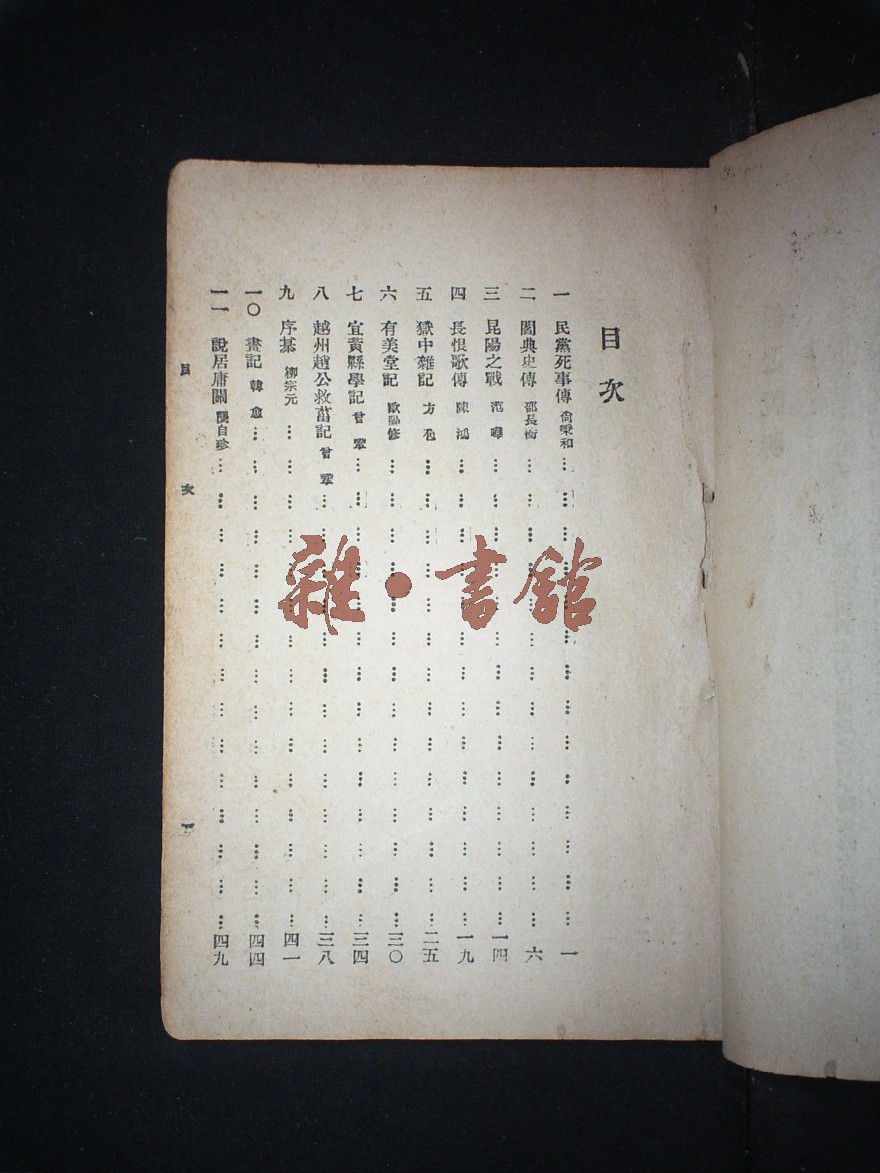 目次
一 民黨死事傳 尙秉和……一
二 閻典史傳 邵長衡……六
三 昆陽之戰 范曄……一四
四 長恨歌傳 陳鴻……一九
五 獄中雜記 方苞……二五
六 有美堂記 歐陽修……三〇
七 宜黃縣學記 曾鞏……三四
八 越州趙公救菑記 曾鞏……三八
九 序棊 柳宗元……四一
一〇 畫記 韓愈……四四
一一 說居庸關 龔自珍……四九
目次
雜·書館